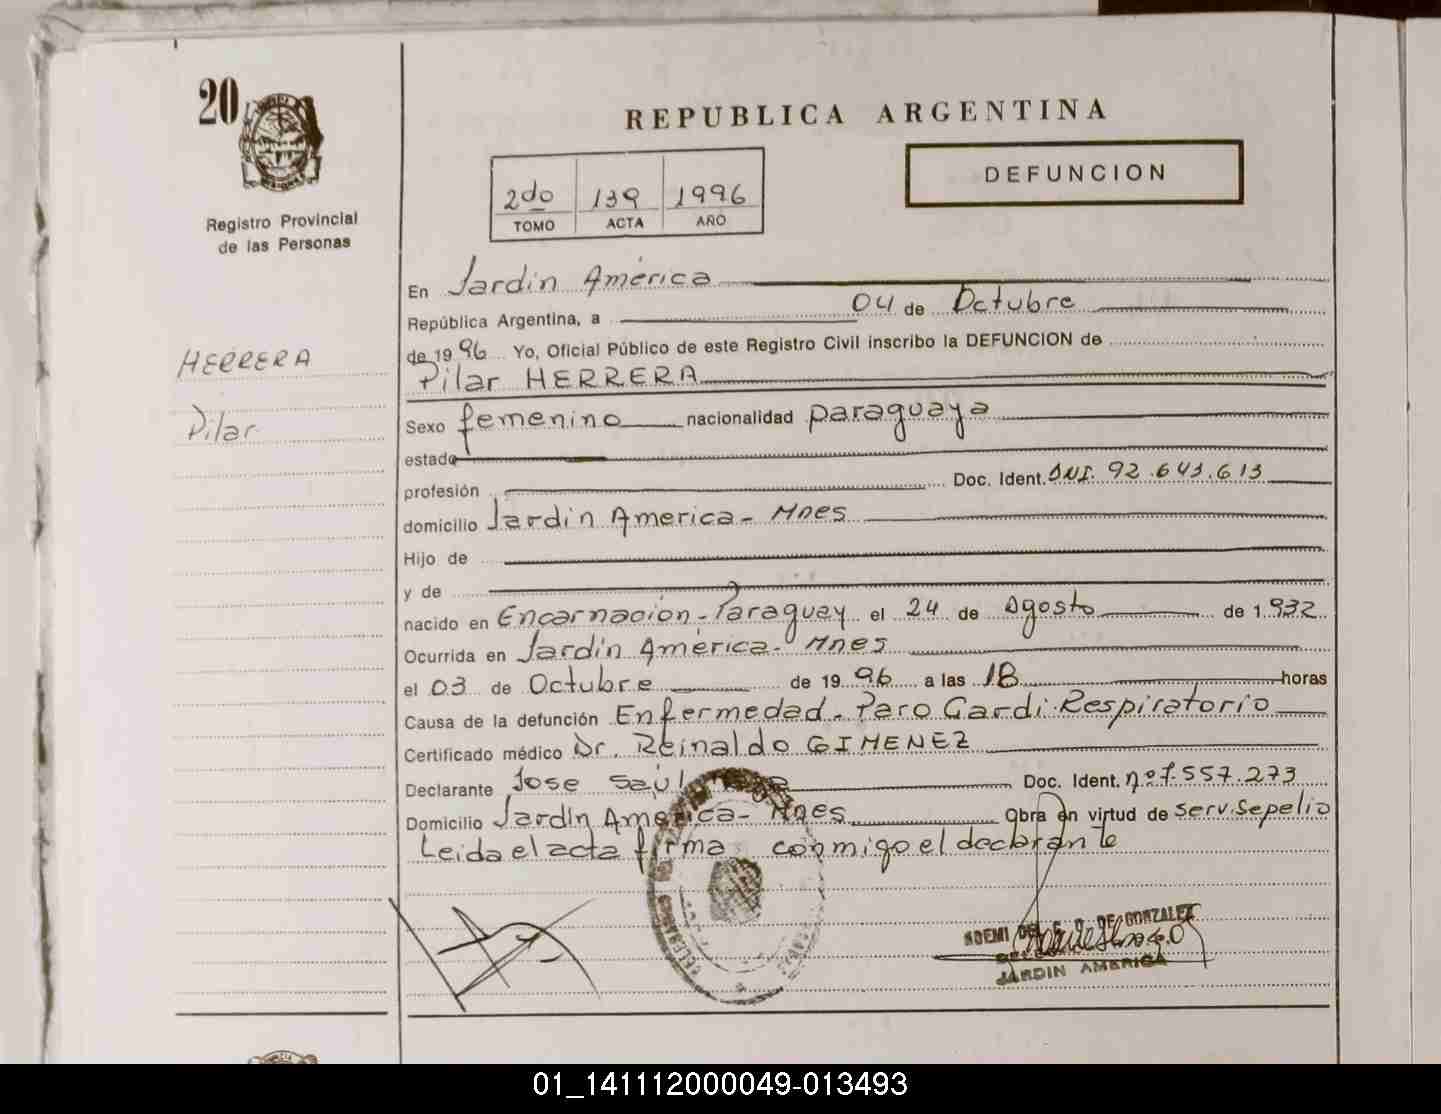 20
Registro Provincial
de las Personas
HERRERA
Pilar
REPUBLICA ARGENTINA
DEFUNCION
2do 139 1996
TOMO ACTA AÑO
En Jardín América
República Argentina, a 04 de Octubre
de 19 96 Yo, Oficial Público de este Registro Civil inscribo la DEFUNCION de
Pilar HERRERA
Sexo femenino nacionalidad paraguaya
estado
profesión Doc. Ident. DNI. 92.643.613
domicilio Jardín America - Mnes
Hijo de
y de
nacido en Encarnación - Paraguay el 24 de Agosto de 1.932
Ocurrida en Jardín América - Mnes
el 03 de Octubre de 19 96 a las 18 horas
Causa de la defunción Enfermedad - Paro Cardi Respiratorio
Certificado médico Dr. Reinaldo GIMENEZ
Declarante Jose Saúl Doc. Ident. nº 7.557.273
Domicilio Jardín America - Mnes Obra en virtud de serv. Sepelio
Leida el acta firma conmigo el declarante
NOEMI DE GONZALEZ
JARDIN AMERICA
01_141112000049-013493